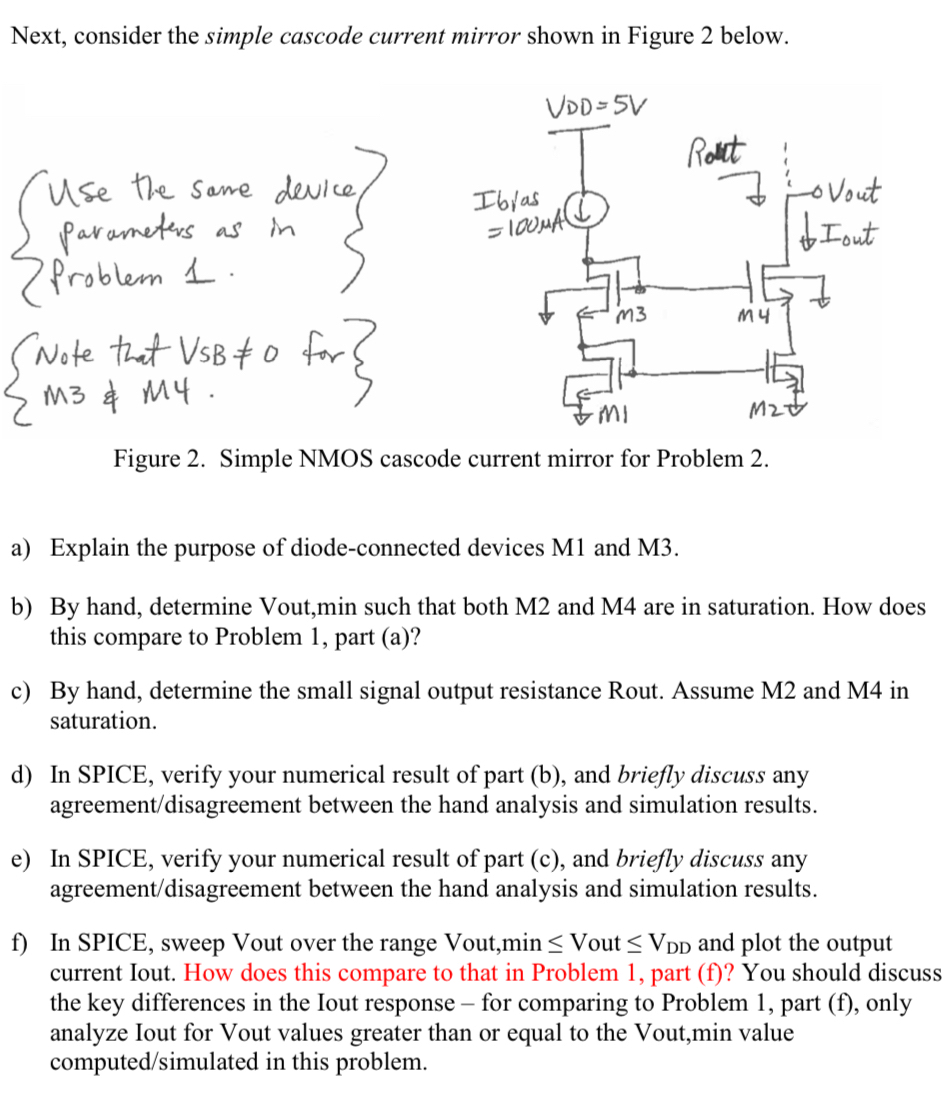 Next, consider the simple cascode current mirror shown in Figure 2 below.
VDD=5V
Rout
Use the same device
parameters as in
Problem 1.
Ibias
=100μA
Vout
Iout
M3
M4
Note that VSB≠0 for
M3 & M4.
M1
M2
Figure 2. Simple NMOS cascode current mirror for Problem 2.
a) Explain the purpose of diode-connected devices M1 and M3.
b) By hand, determine Vout,min such that both M2 and M4 are in saturation. How does
this compare to Problem 1, part (a)?
c) By hand, determine the small signal output resistance Rout. Assume M2 and M4 in
saturation.
d) In SPICE, verify your numerical result of part (b), and briefly discuss any
agreement/disagreement between the hand analysis and simulation results.
e) In SPICE, verify your numerical result of part (c), and briefly discuss any
agreement/disagreement between the hand analysis and simulation results.
f) In SPICE, sweep Vout over the range Vout,min ≤ Vout ≤ VDD and plot the output
current Iout. How does this compare to that in Problem 1, part (f)? You should discuss
the key differences in the Iout response – for comparing to Problem 1, part (f), only
analyze Iout for Vout values greater than or equal to the Vout,min value
computed/simulated in this problem.